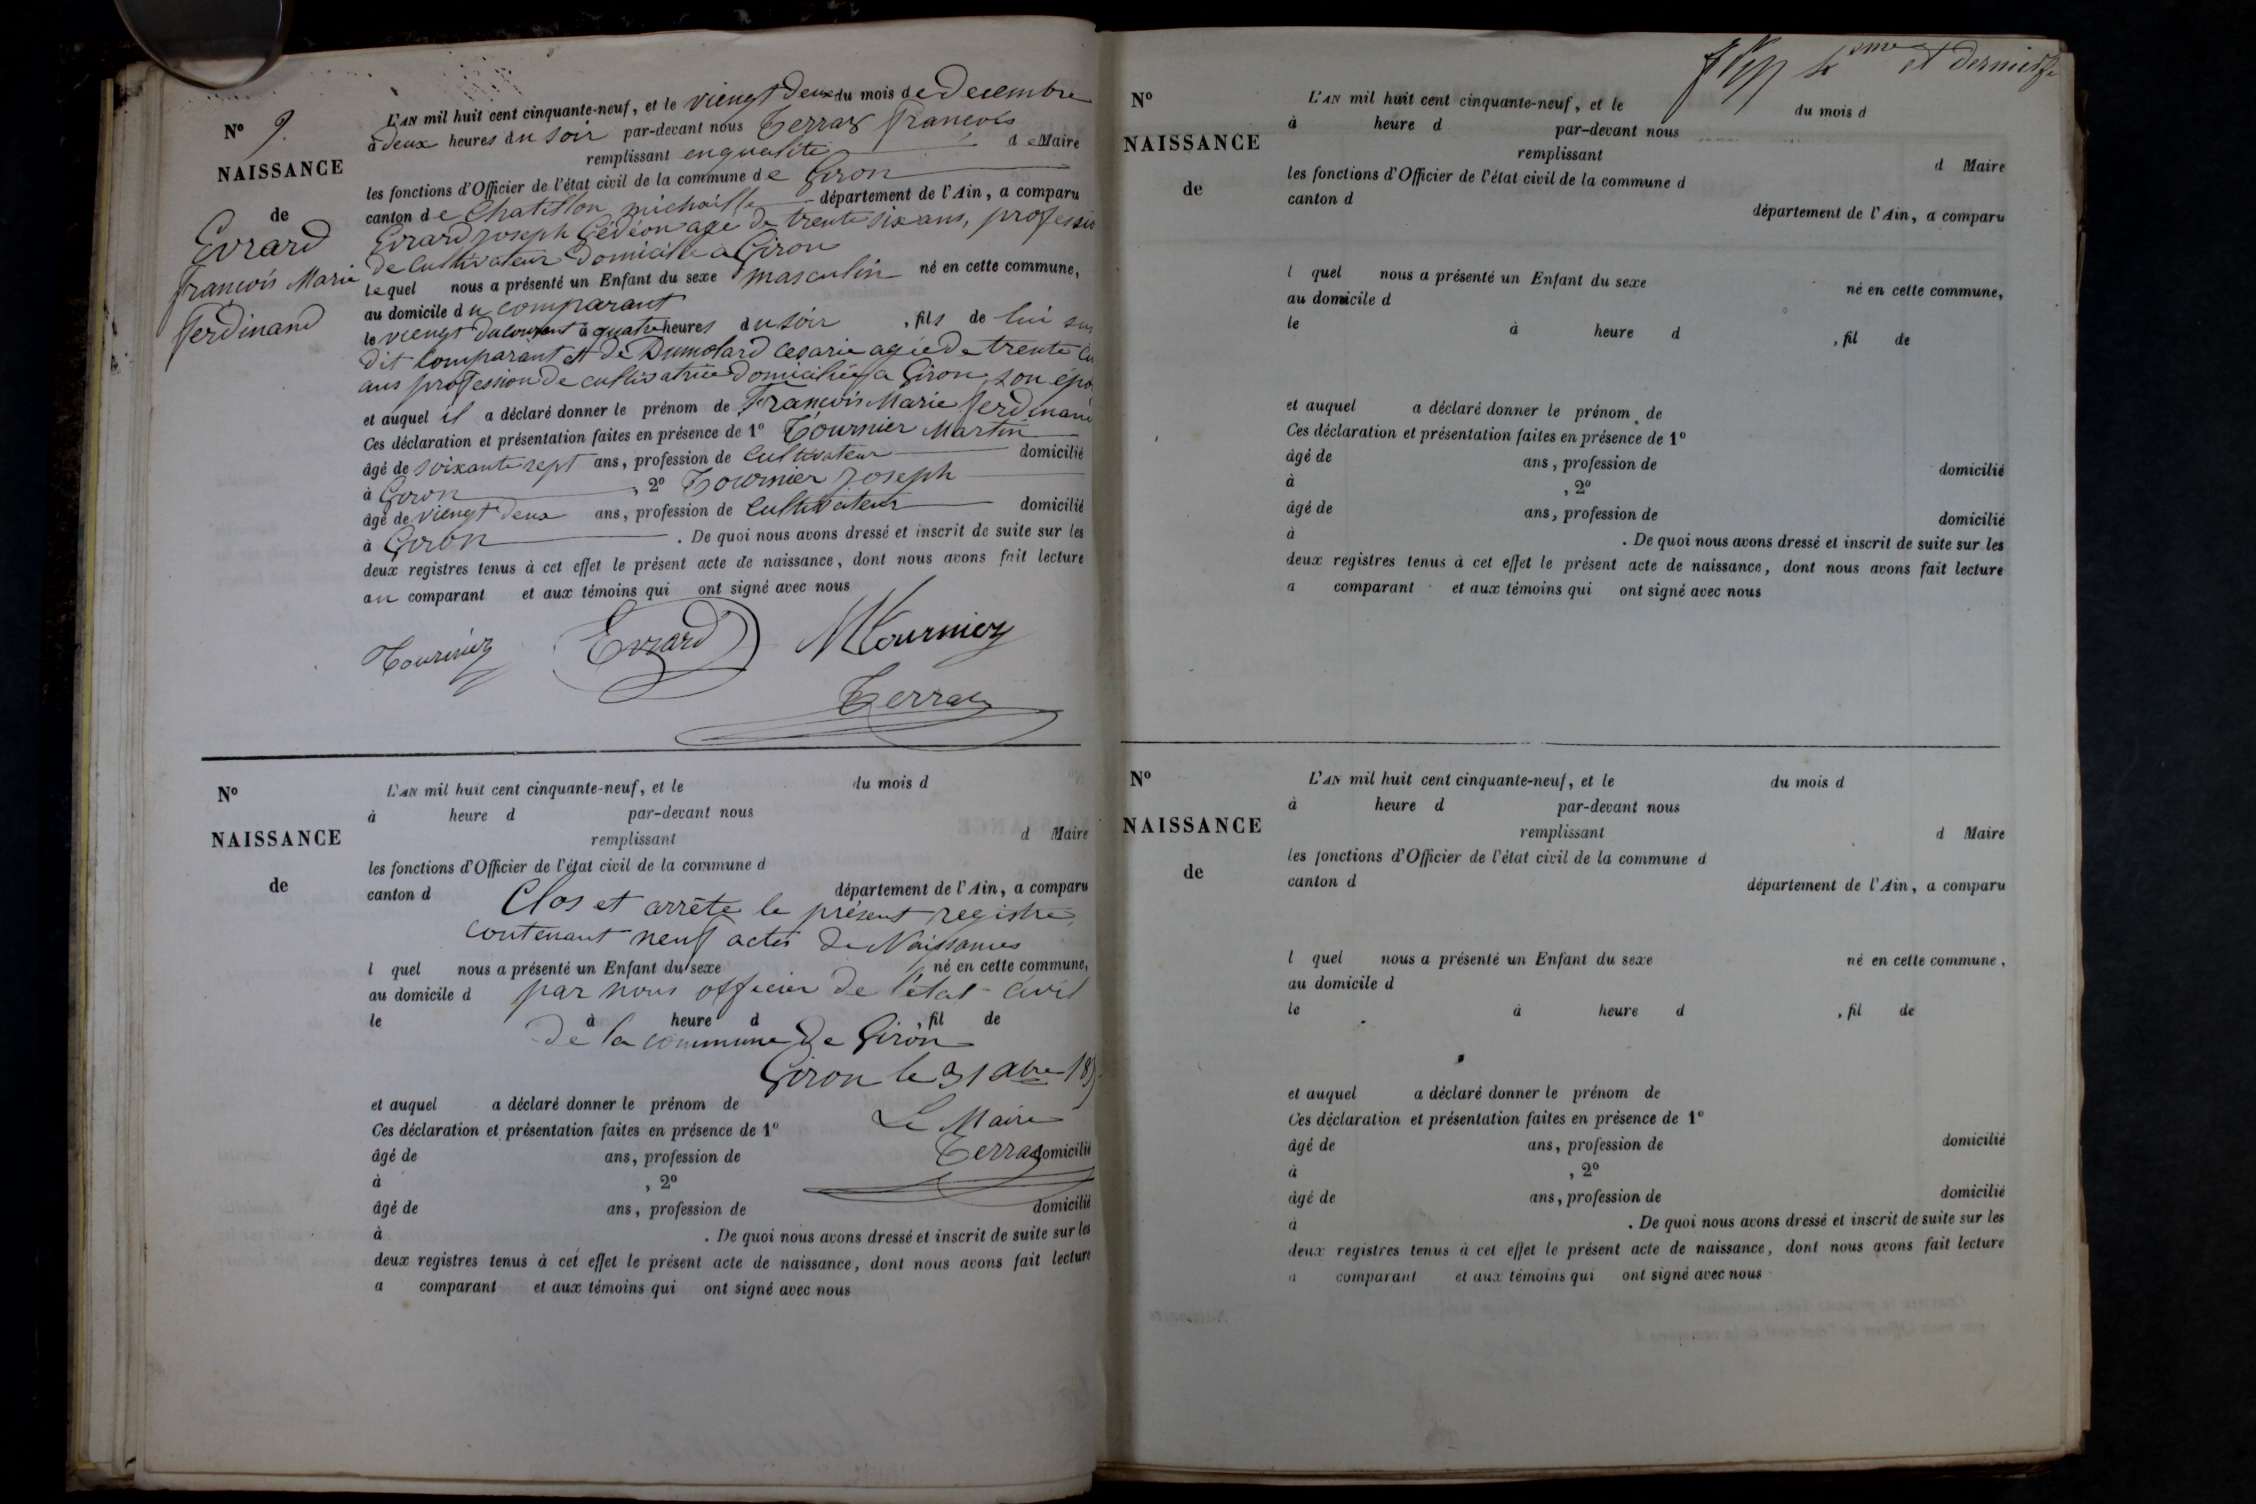 N° 9.
NAISSANCE
de
Evrard
François Marie
Ferdinand
L'AN mil huit cent cinquante-neuf, et le viengt deux du mois de decembre
à deux heures du soir par-devant nous Terraz François
remplissant en qualité de Maire
les fonctions d'Officier de l'état civil de la commune de Giron
canton de Chatillon michaille département de l'Ain, a comparu
Evrard joseph Gédéon agé de trente six ans, professio
de cultivateur domicilié a Giron
lequel nous a présenté un Enfant du sexe masculin né en cette commune,
au domicile du comparant
le viengt du courant à quatre heures du soir, fils de lui sus
dit comparant et de Dumolard cesarie agée de trente
ans profession de cultivatrice domiciliée a Giron, son épo
et auquel il a déclaré donner le prénom de François Marie Ferdinand
Ces déclaration et présentation faites en présence de 1° Tournier Martin
âgé de soixante sept ans, profession de cultivateur domicilié
à Giron, 2° Tournier joseph
âgé de viengt deux ans, profession de cultivateur domicilié
à Giron. De quoi nous avons dressé et inscrit de suite sur les
deux registres tenus à cet effet le présent acte de naissance, dont nous avons fait lecture
au comparant et aux témoins qui ont signé avec nous
Tournier Evrard MTournier
Terraz
N°
NAISSANCE
de
L'AN mil huit cent cinquante-neuf, et le du mois d
à heure d par-devant nous
remplissant d Maire
les fonctions d'Officier de l'état civil de la commune d
canton d département de l'Ain, a comparu
Clos et arrête le présent registre
contenant neuf actes de Naissances
l quel nous a présenté un Enfant du sexe né en cette commune,
au domicile d par nous officier de l'état-civil
le à heure d, fil de
de la commune de Giron
Giron le 31 Xbre 185
et auquel a déclaré donner le prénom de
Le Maire
Ces déclaration et présentation faites en présence de 1°
âgé de ans, profession de Terraz domicilié
à, 2°
âgé de ans, profession de domicilié
à. De quoi nous avons dressé et inscrit de suite sur les
deux registres tenus à cet effet le présent acte de naissance, dont nous avons fait lecture
a comparant et aux témoins qui ont signé avec nous
et dernier
N°
NAISSANCE
de
L'AN mil huit cent cinquante-neuf, et le du mois d
à heure d par-devant nous
remplissant d Maire
les fonctions d'Officier de l'état civil de la commune d
canton d département de l'Ain, a comparu
l quel nous a présenté un Enfant du sexe né en cette commune,
au domicile d
le à heure d, fil de
et auquel a déclaré donner le prénom de
Ces déclaration et présentation faites en présence de 1°
âgé de ans, profession de domicilié
à, 2°
âgé de ans, profession de domicilié
à. De quoi nous avons dressé et inscrit de suite sur les
deux registres tenus à cet effet le présent acte de naissance, dont nous avons fait lecture
a comparant et aux témoins qui ont signé avec nous
N°
NAISSANCE
de
L'AN mil huit cent cinquante-neuf, et le du mois d
à heure d par-devant nous
remplissant d Maire
les fonctions d'Officier de l'état civil de la commune d
canton d département de l'Ain, a comparu
l quel nous a présenté un Enfant du sexe né en cette commune,
au domicile d
le à heure d, fil de
et auquel a déclaré donner le prénom de
Ces déclaration et présentation faites en présence de 1°
âgé de ans, profession de domicilié
à, 2°
âgé de ans, profession de domicilié
à. De quoi nous avons dressé et inscrit de suite sur les
deux registres tenus à cet effet le présent acte de naissance, dont nous avons fait lecture
a comparant et aux témoins qui ont signé avec nous